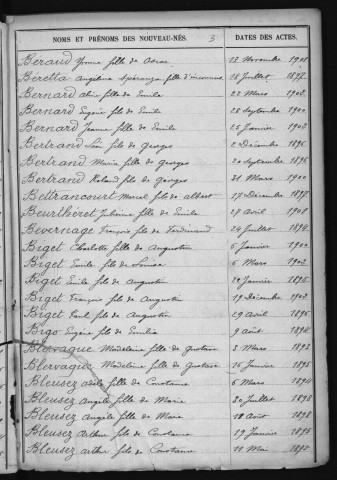 NOMS ET PRÉNOMS DES NOUVEAU-NÉS. 3 DATES DES ACTES.
Béraud Yvonne fille de 13 Novembre 1901
Beretta Angelina Speranza fille d'inconnus 28 Juillet 1897
Bernard fils de Emile 22 Mars 1903
Bernard Eugène fils de Emile 28 Septembre 1900
Bernard Jeanne fille de Emile 25 Janvier 1902
Bertrand Léon fils de Georges 2 Décembre 1895
Bertrand Maria fille de Georges 20 Septembre 1896
Bertrand Roland fils de Georges 31 Mars 1900
Bettrancourt Marcel fils de Albert 17 Décembre 1897
Beurthéret Julienne fille de Emile 27 Avril 1901
Bevernage François fils de Ferdinand 24 Juillet 1894
Biget Charlotte fille de Augustin 6 Janvier 1900
Biget Emile fils de Louise 6 Mars 1902
Biget Emile fils de Augustin 20 Janvier 1895
Biget François fils de Augustin 19 Décembre 1902
Biget Paul fils de Augustin 29 Avril 1896
Bigo Eugène fils de Emilia 9 Août 1894
Blervaque Madeleine fille de Gustave 3 Mars 1893
Blervaque Madeleine fille de Gustave 16 Janvier 1895
Bleusez fille de Constance 6 Mars 1894
Bleusez Angèle fille de Marie 30 Juillet 1898
Bleusez Angèle fille de Marie 1er Août 1898
Bleusez Arthur fils de Constance 19 Janvier 1895
Bleusez Arthur fils de Constance 11 Mai 1897